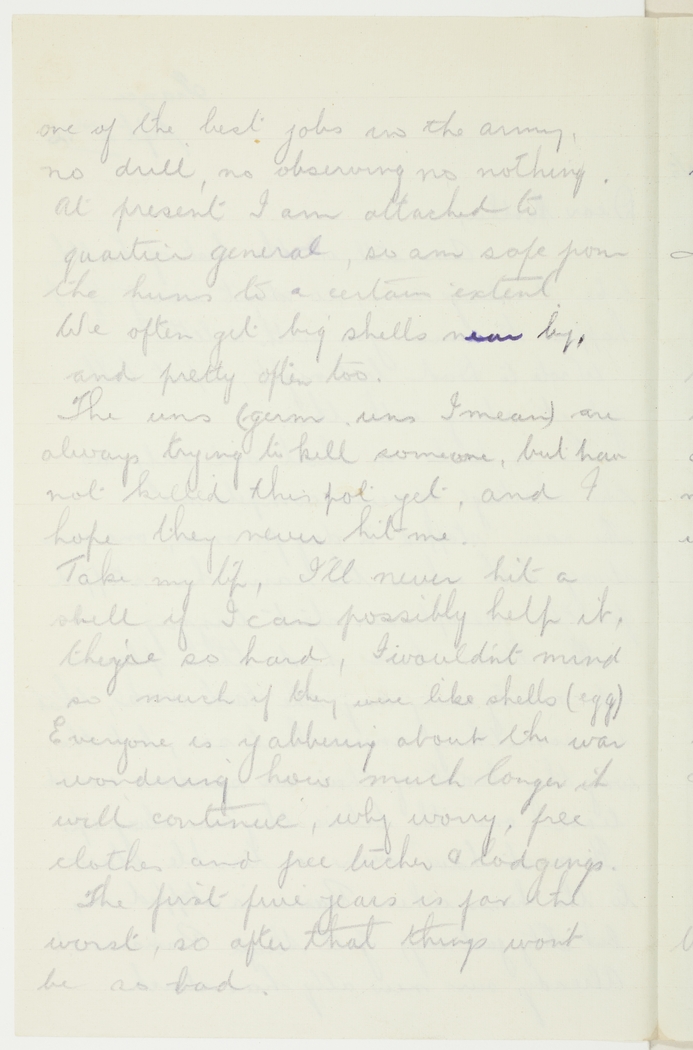 one of the best jobs in the army,
no drill, no observing no nothing.
At present I am attached to
quartier general, so am safe from
the huns to a certain extent
We often get big shells near by,
and pretty often too.
The uns (germ uns I mean) are
always trying to kill someone, but hav
not killed this pot yet, and I
hope they never hit me.
Take my tip, I'll never hit a
shell if I can possibly help it,
they're so hard, I wouldn't mind
so much if they were like shells (egg)
Everyone is yabbering about the war
wondering how much longer it
will continue, why worry, free
clothes and free tucker & lodgings.
The first five years is far the
worst, so after that things won't
be so bad.